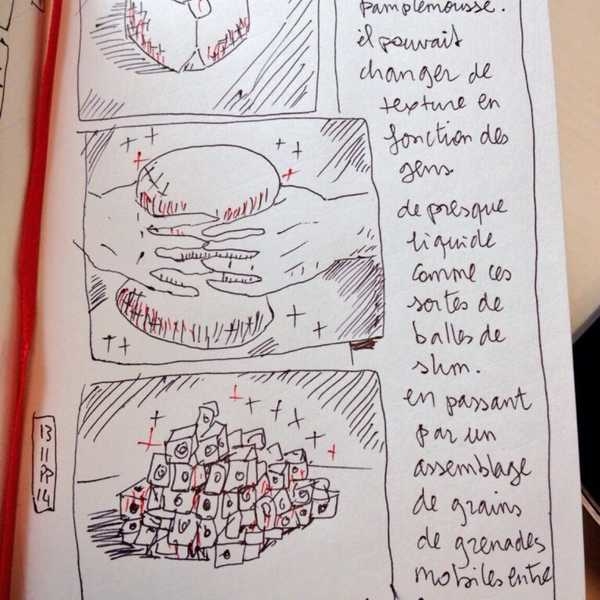 pamplemousse.
il pouvait
changer de
texture en
fonction des
gens
de presque
liquide
comme ces
sortes de
balles de
slim.
en passant
par un
assemblage
de grains
de grenades
mobiles entre
13
11
14